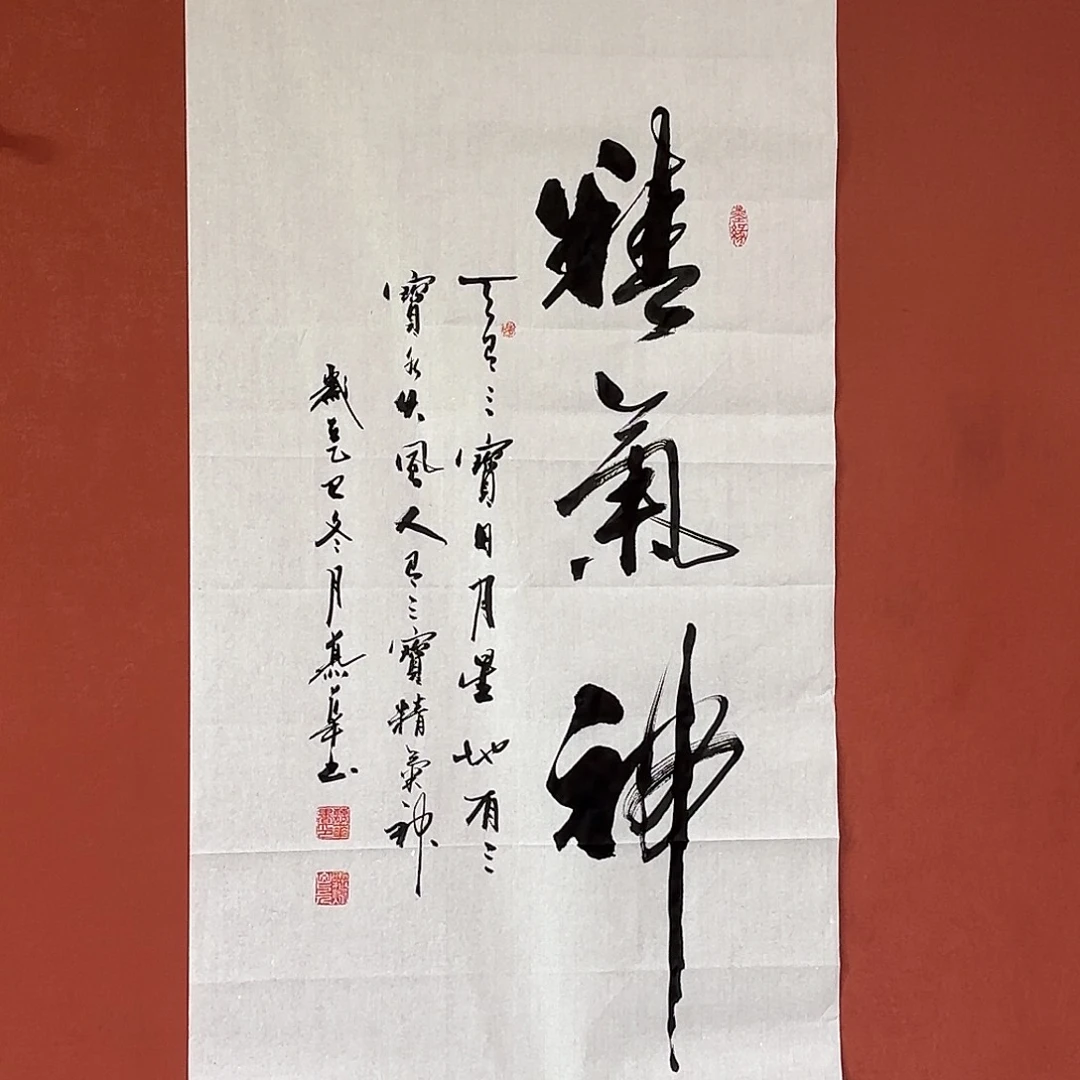 精氣神
天有三寶日月星地有三
寶水火風人有三寶精氣神
歲乙巳冬月慕華书